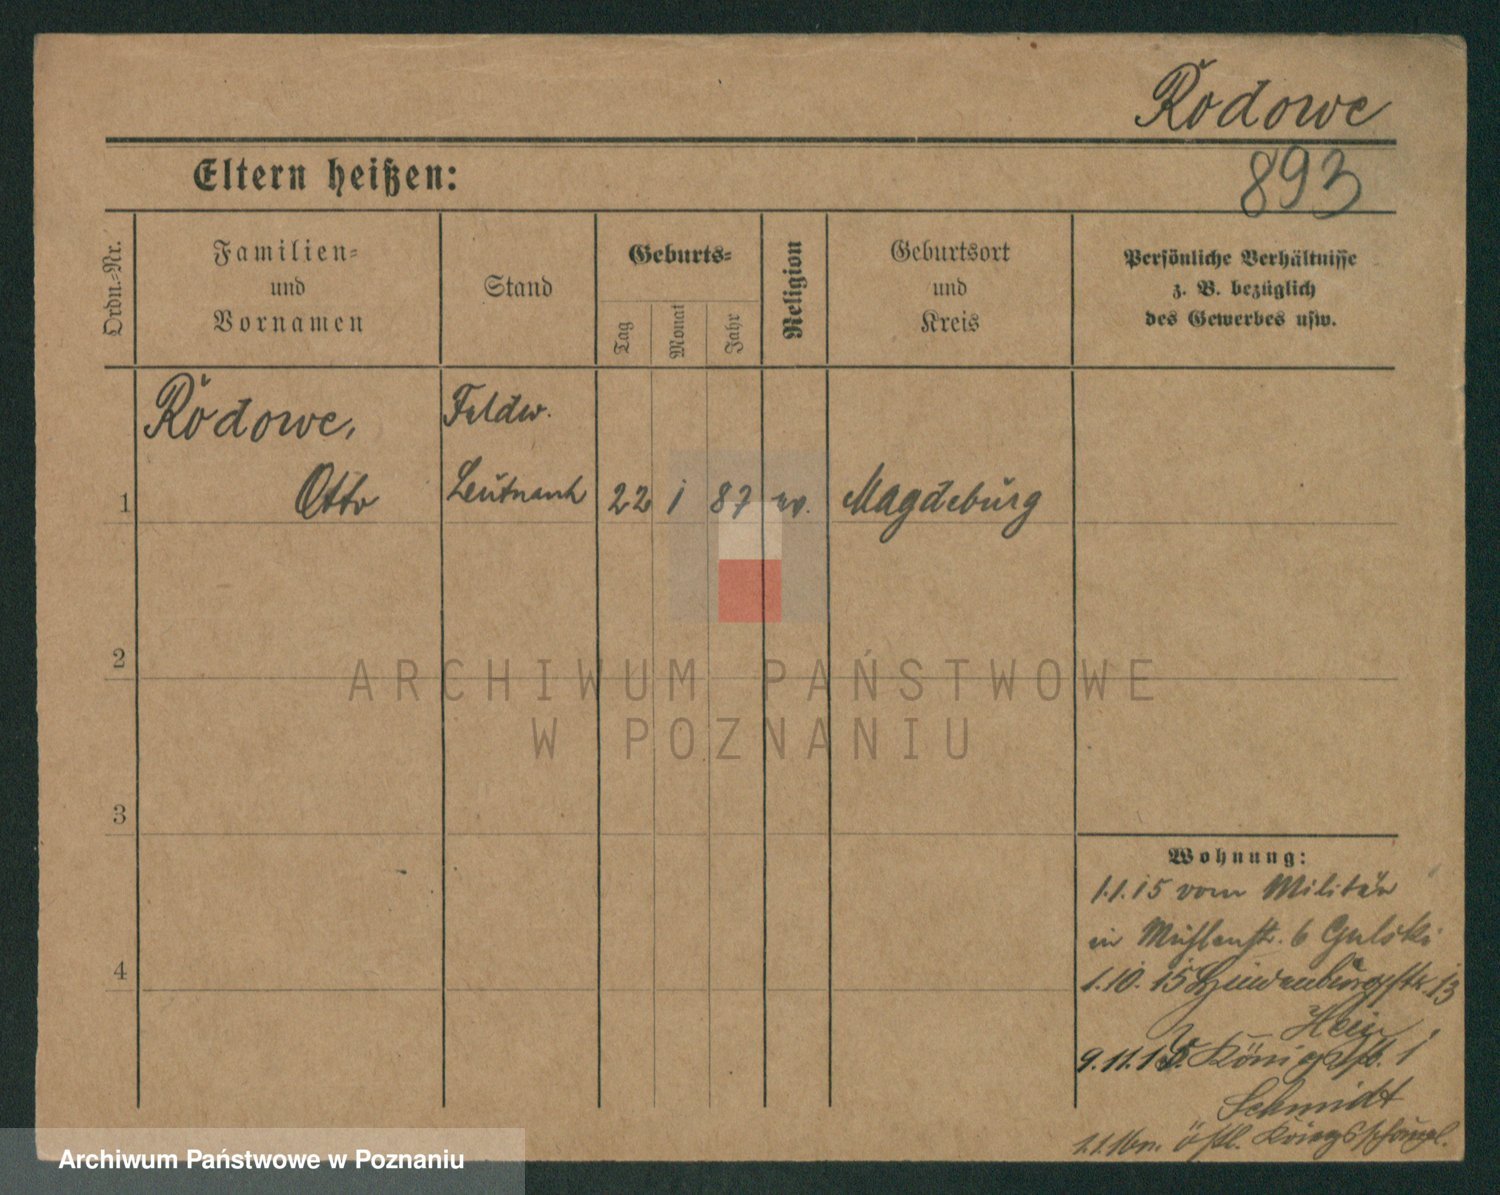 Rodowe
893
Eltern heißen:
Ordn.-Nr.
Familien-
und
Vornamen
Stand
Geburts-
Tag
Monat
Jahr
Religion
Geburtsort
und
Kreis
Persönliche Verhältnisse
z. B. bezüglich
des Gewerbes usw.
Rodowe, Feldw.
1 Otto Leutnant 22 1 87 ev. Magdeburg
2
3
4
ARCHIWUM PAŃSTWOWE
W POZNANIU
Wohnung:
1.1.15 vom Militär
in Mühlenstr. 6 Gulski
1.10.15 Hindenburgstr. 13
9.11.15. Königstr. 1
Schmidt
1.1.16 n. östl. Kriegsschaupl.
Archiwum Państwowe w Poznaniu